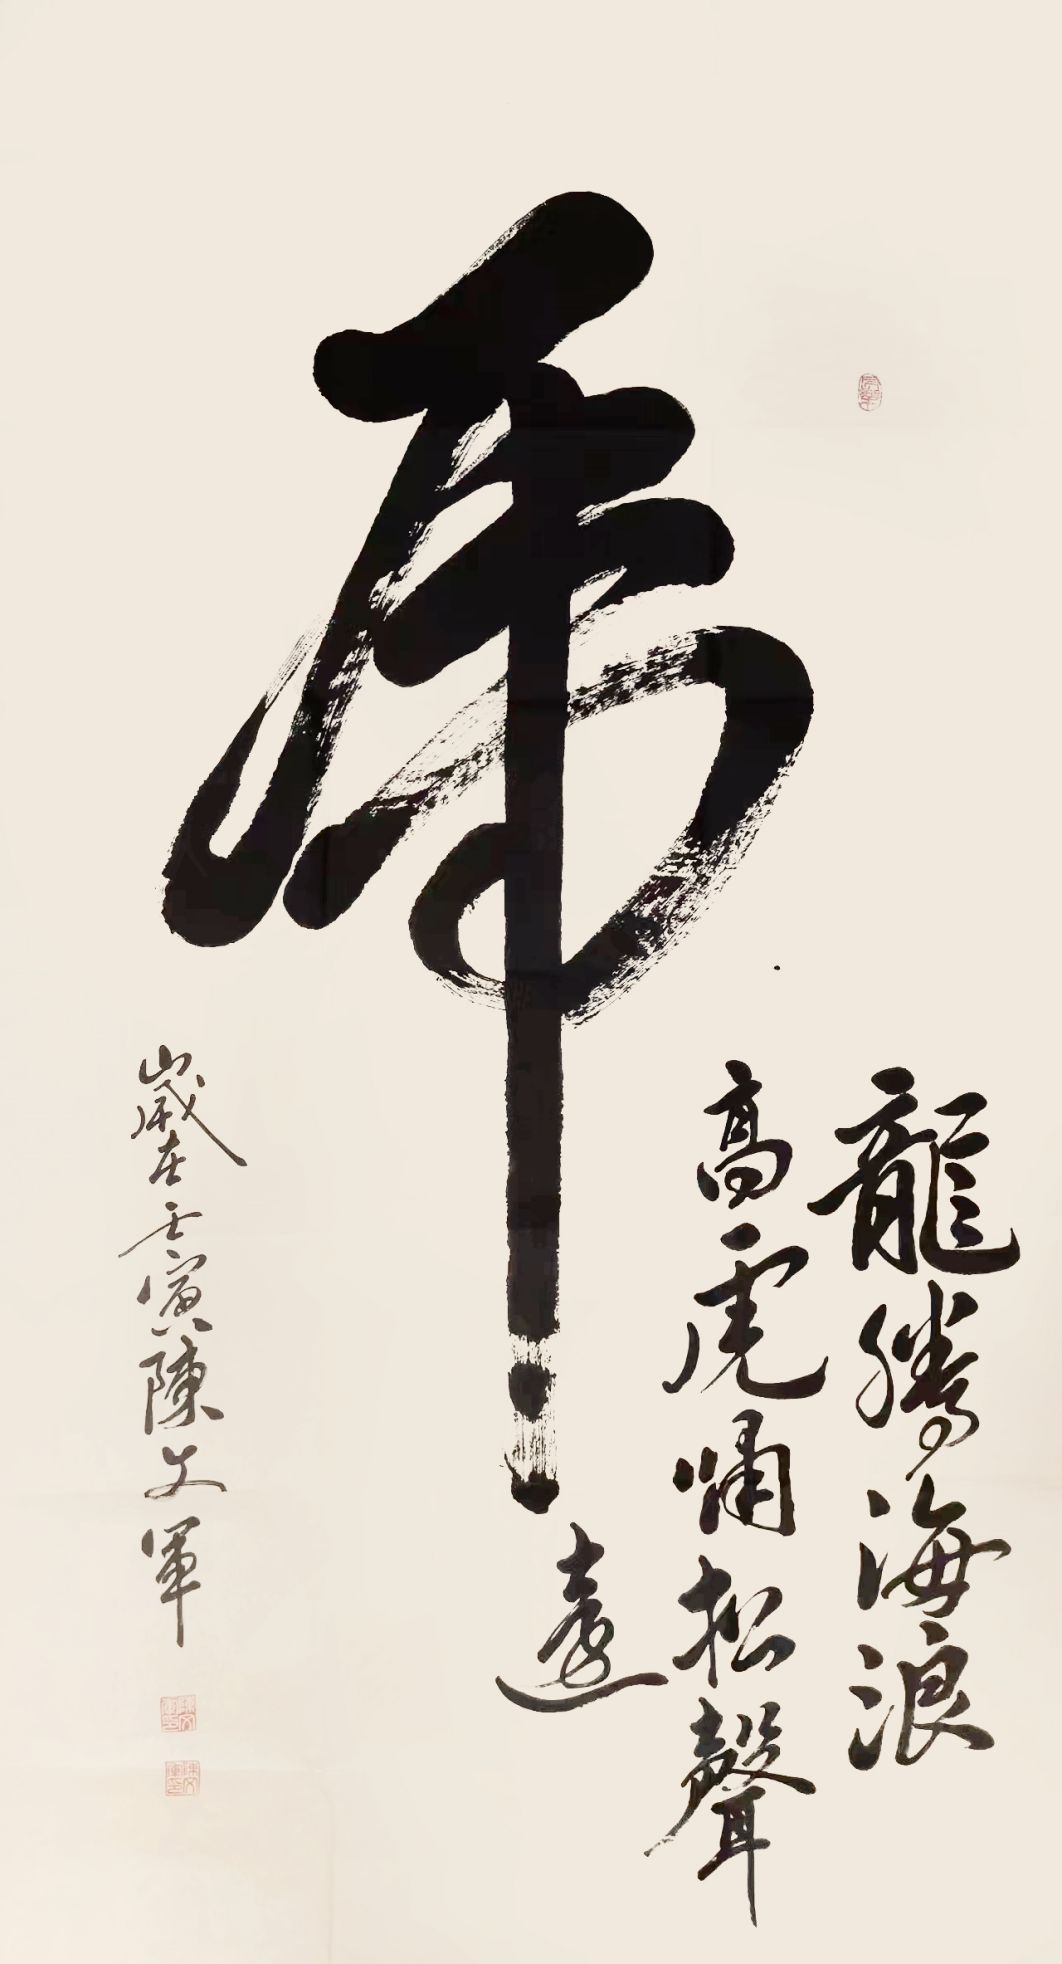 虎
龍騰海浪
高虎嘯松聲
遠
歲在壬寅陳文軍